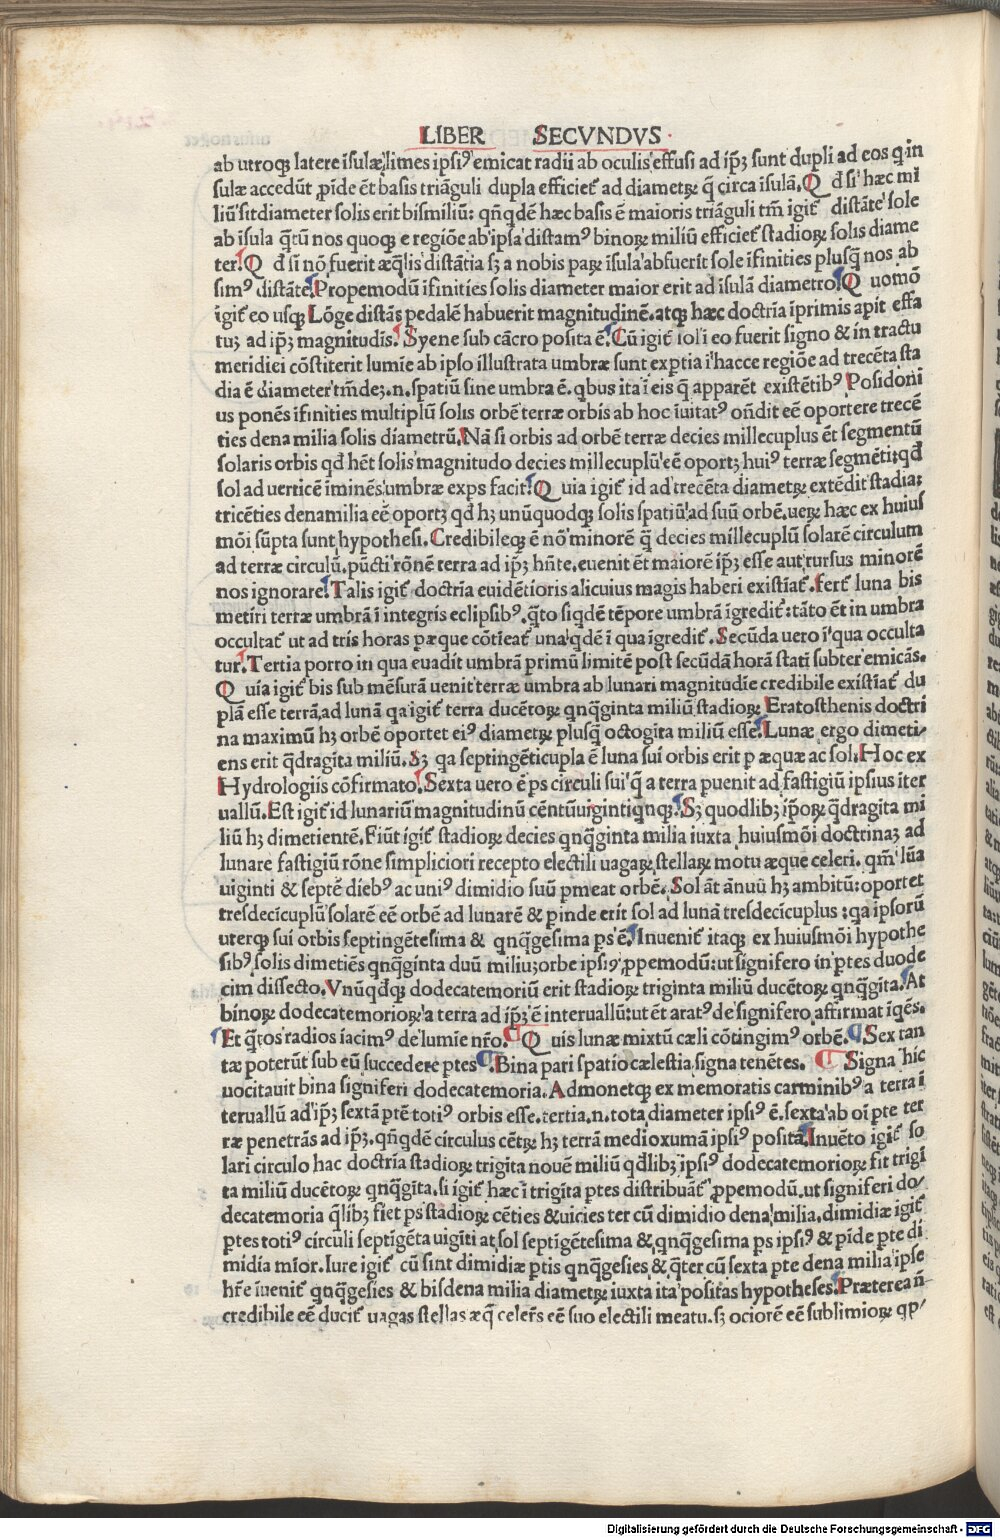 LIBER SECVNDVS
ab utroqꝫ latere ĩsulæ limes ipsiꝰ emicat radii ab oculis effusi ad ip̃ꝫ sunt dupli ad eos q in
sulæ accedũt ꝓide ẽt basis triãguli dupla efficiet̃ ad diametꝝ q̃ circa ĩsulã. Q d̃ si hæc mi
liũ sit diameter solis erit bis miliũ: qñqdẽ hæc basis ẽ maioris triãguli tm̃ igit̃ distãte sole
ab ĩsula q̃tũ nos quoqꝫ e regiõe ab ipsa distamꝰ binoꝝ miliũ efficiet̃ stadioꝝ solis diame
ter. Q d̃ si nõ fuerit æq̃lis distãtia sꝫ a nobis paꝝ ĩsula abfuerit sole ĩfinities plusq̃ nos ab
simꝰ distãte. Propemodũ ĩfinities solis diameter maior erit ad ĩsulã diametro. Q uomõ
igit̃ eo usqꝫ Lõge distãs pedalẽ habuerit magnitudinẽ. atqꝫ hæc doctrĩa ĩprimis apit effa
tuꝫ ad ip̃ꝫ magnitudis. Syene sub cãcro posita ẽ. Cũ igit̃ sol i eo fuerit signo & in tractu
meridiei cõstiterit lumĩe ab ipso illustrata umbræ sunt exptia i hacce regiõe ad trecẽta sta
dia ẽ diameter tm̃deꝫ.n. spatiũ sine umbra ẽ. qbus ita i eis q̃ apparẽt existẽtibꝰ Posidoni
us ponẽs ĩfinities multiplũ solis orbẽ terræ orbis ab hoc ĩuitatꝰ oñdit eẽ oportere trecẽ
ties dena milia solis diametrũ. Nã si orbis ad orbẽ terræ decies millecuplus ẽt segmentũ
solaris orbis qd̃ hẽt solis magnitudo decies millecuplũ eẽ oportꝫ huiꝰ terræ segmẽti: qd̃
sol ad uerticẽ ĩminẽs umbræ exps facit. Q uia igit̃ id ad trecẽta diametꝝ extẽdit stadia:
tricẽties denamilia eẽ oportꝫ qd̃ hꝫ unũquodqꝫ solis spatiũ ad suũ orbẽ. ueꝝ hæc ex huius
mõi sũpta sunt hypothesi. Credibileqꝫ ẽ nõ minorẽ q̃ decies millecuplũ solarẽ circulum
ad terræ circulũ. pũcti rõnẽ terra ad ip̃ꝫ hñte. euenit ẽt maiorẽ ip̃ꝫ esse aut rursus minorẽ
nos ignorare. Talis igit̃ doctrĩa euidẽtioris alicuius magis haberi existĩat̃. fert̃ luna bis
metiri terræ umbrã ĩ integris eclipsibꝰ. q̃to siqdẽ tẽpore umbrã ĩgredit̃: tãto ẽt in umbra
occultat̃ ut ad tris horas pæque cõtieat̃ una qdẽ i qua ĩgredit̃. Secũda uero i qua occulta
tur. Tertia porro in qua euadit umbrã primũ limitẽ post secũdã horã stati subter emicãs.
Q uia igit̃ bis sub mẽsurã uenit terræ umbra ab lunari magnitudĩe credibile existĩat̃ du
plã esse terrã, ad lunã qa igit̃ terra ducẽtoꝝ qnq̃ginta miliũ stadioꝝ Eratosthenis doctri
na maximũ hꝫ orbẽ oportet eiꝰ diametꝝ plusq̃ octogita miliũ esse. Lunæ ergo dimeti/
ens erit q̃dragita miliũ. Sꝫ qa septingẽticupla ẽ luna sui orbis erit p æquæ ac sol. Hoc ex
Hydrologiis cõfirmato. Sexta uero ẽ ps circuli sui q̃ a terra puenit ad fastigiũ ipsius iter
uallũ. Est igit̃ id lunariũ magnitudinũ cẽtũ uigintiqnqꝫ. Sꝫ quodlibꝫ ip̃oꝝ q̃dragita mi
liũ hꝫ dimetientẽ. Fiũt igit̃ stadioꝝ decies qnq̃ginta milia iuxta huiusmõi doctrinaꝫ ad
lunare fastigiũ rõne simpliciori recepto electili uagaꝝ stellaꝝ motu æque celeri. qm̃ lũa
uiginti & septẽ diebꝰ ac uniꝰ dimidio suũ pmeat orbẽ. Sol ãt ãnuũ hꝫ ambitũ: oportet
tresdecĩcuplũ solarẽ eẽ orbẽ ad lunarẽ & pinde erit sol ad lunã tresdecĩcuplus: qa ipsorũ
uterqꝫ sui orbis septingẽtesima & qnq̃gesima ps ẽ. Inuenit̃ itaqꝫ ex huiusmõi hypothe
sibꝰ solis dimetiẽs qnq̃ginta duũ miliuꝫ orbe ipsiꝰ ꝓpemodũ: ut signifero in ptes duode
cim dissecto. Vnũqd̃qꝫ dodecatemoriũ erit stadioꝝ triginta miliũ ducẽtoꝝ qnq̃gita. At
binoꝝ dodecatemorioꝝ a terra ad ip̃ꝫ ẽ interuallũ: ut ẽt aratꝰ de signifero affirmat ĩqẽs.
Et q̃tos radios iacimꝰ de lumĩe nr̃o. Q uis lunæ mixtũ cæli cõtingimꝰ orbẽ. Sex tan
tæ poterũt sub eũ succedere ptes. Bina pari spatio cælestia signa tenẽtes. Signa hic
uocitauit bina signiferi dodecatemoria. Admonetqꝫ ex memoratis carminibꝰ a terra ĩ
teruallũ ad ip̃ꝫ sextã ptẽ totiꝰ orbis esse. tertia.n. tota diameter ipsiꝰ ẽ. sexta ab oĩ pte ter
ræ penetrãs ad ip̃ꝫ. qñqdẽ circulus cẽtꝝ hꝫ terrã medioxumã ipsiꝰ positã. Inuẽto igit̃ so
lari circulo hac doctrĩa stadioꝝ trigita nouẽ miliũ qd̃libꝫ ipsiꝰ dodecatemorioꝝ fit trigi
ta miliũ ducẽtoꝝ qnq̃gita. si igit̃ hæc i trigita ptes distribuat̃ ꝓpemodũ. ut signiferi do/
decatemoria q̃libꝫ fiet ps stadioꝝ cẽties & uicies ter cũ dimidio dena milia. dimidiæ igit̃
ptes totiꝰ circuli septigẽta uigiti at sol septigẽtesima & qnq̃gesima ps ipsiꝰ & pide pte di
midia mior. Iure igit̃ cũ sint dimidiæ ptis qnq̃gesies & q̃ter cũ sexta pte dena milia ipse
hr̃e ĩuenit̃ qnq̃gesies & bisdena milia diametꝝ iuxta ita positas hypotheses. Præterea ñ
credibile eẽ ducit̃ uagas stellas æq̃ celer̃s eẽ suo electili meatu. sꝫ ociorẽ eẽ sublimioꝝ qp/
Digitalisierung gefördert durch die Deutsche Forschungsgemeinschaft - DFG